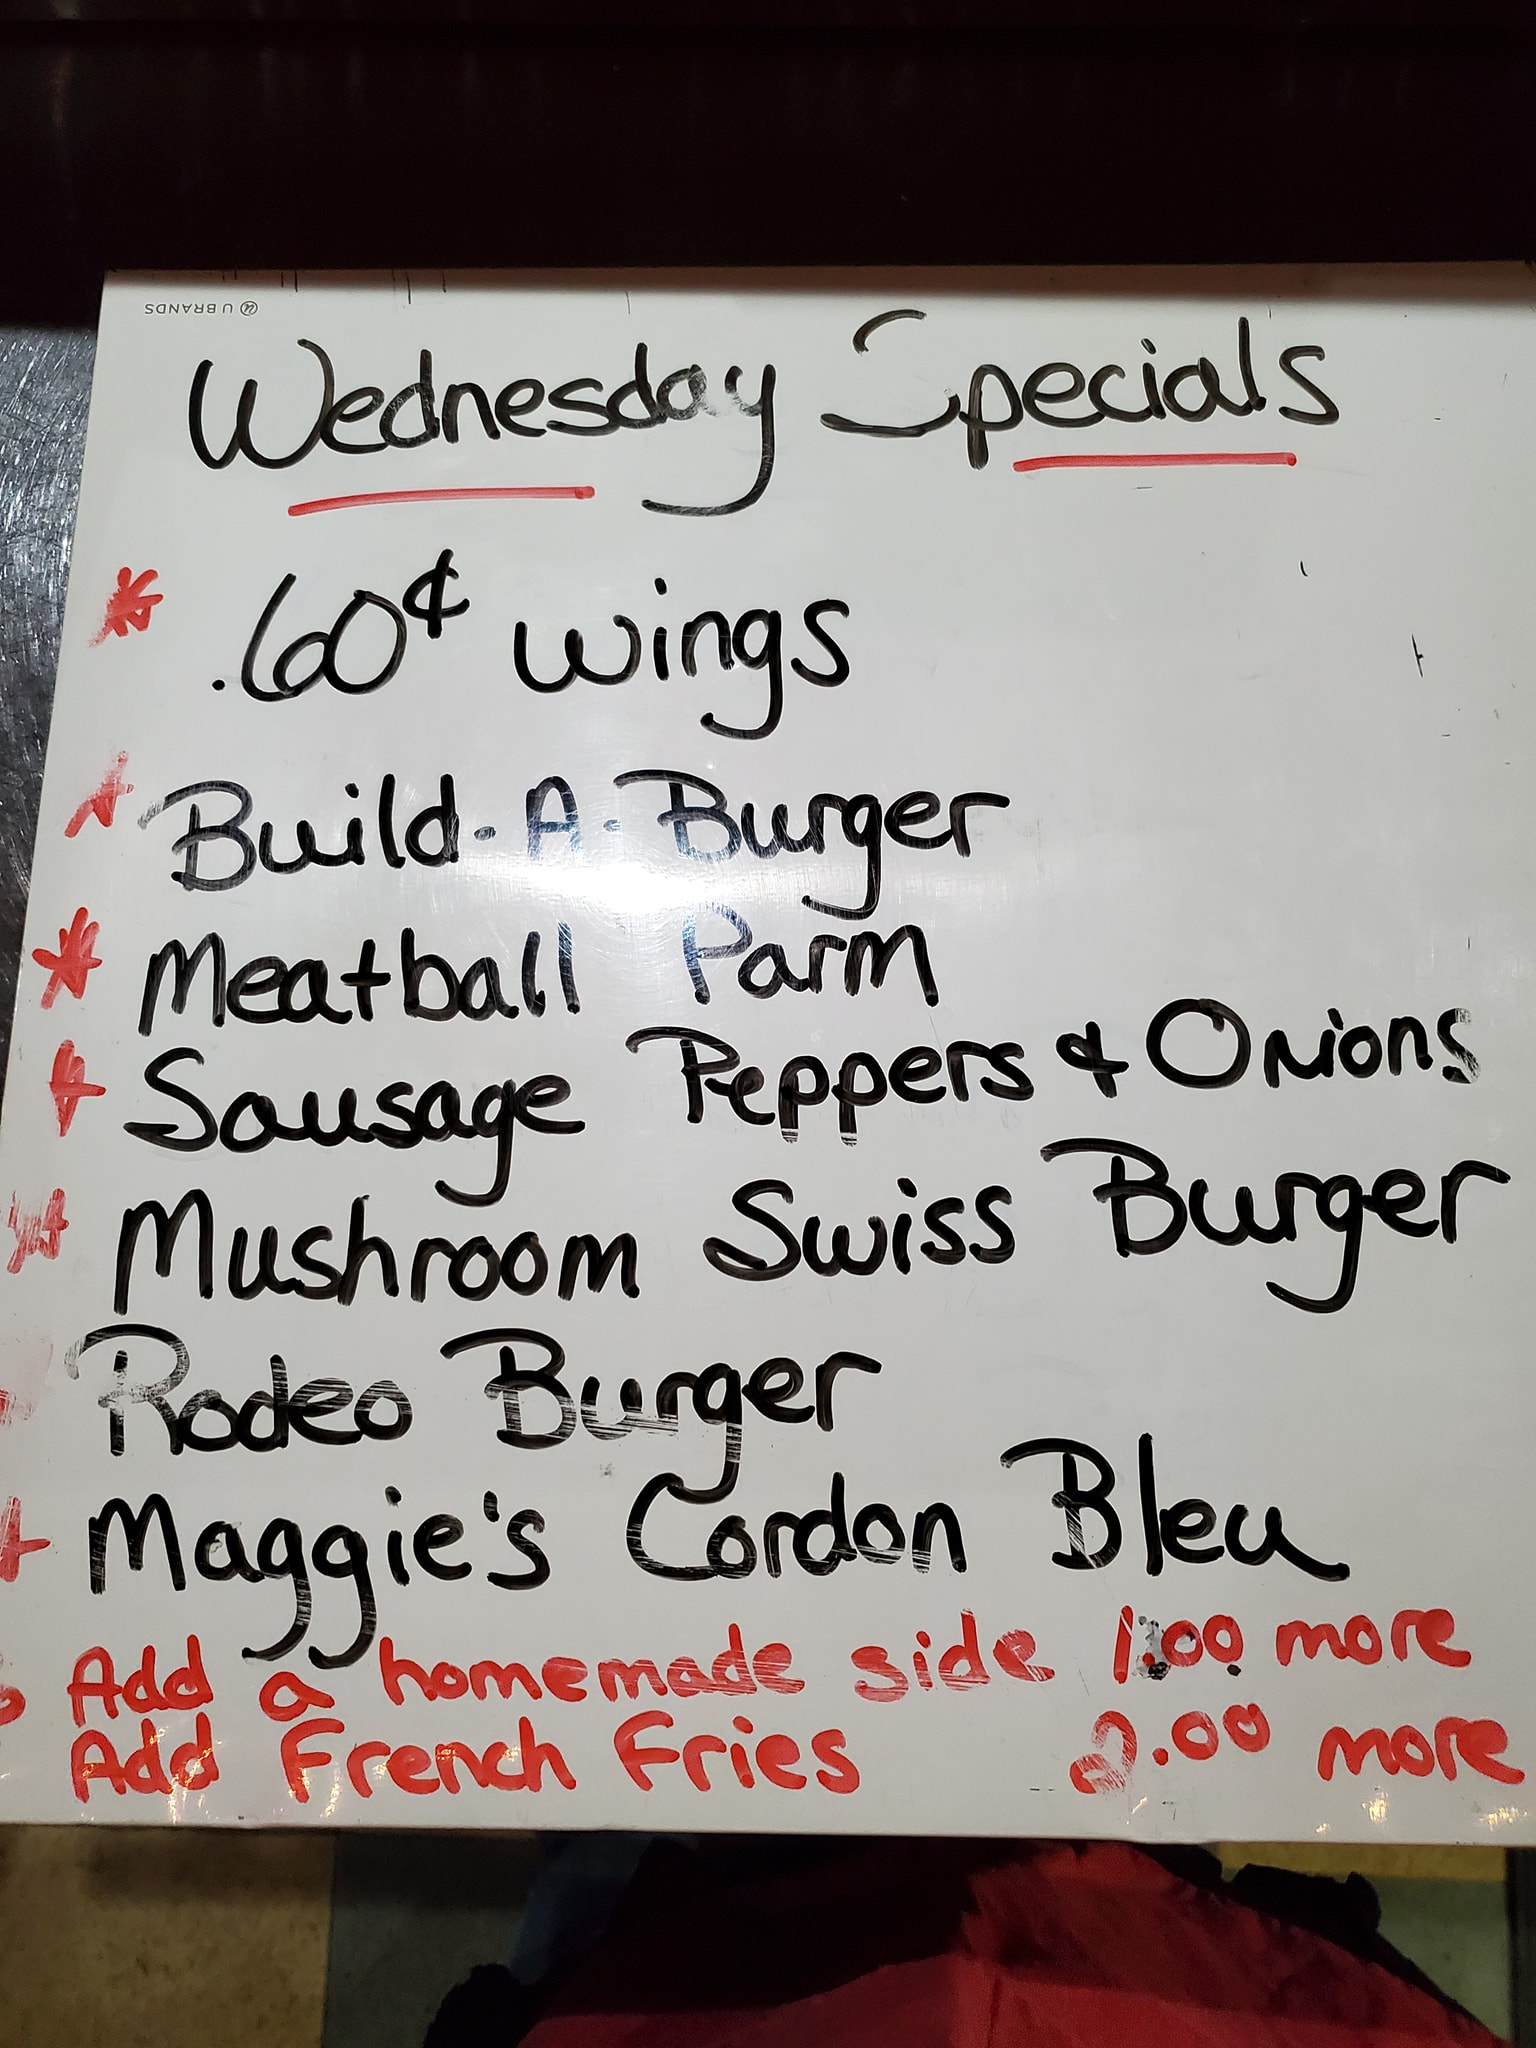 U BRANDS
Wednesday Specials
* .60¢ wings
* Build-A-Burger
* Meatball Parm
* Sausage Peppers & Onions
* Mushroom Swiss Burger
Rodeo Burger
* Maggie's Cordon Bleu
Add a homemade side 1.00 more
Add French Fries 2.00 more